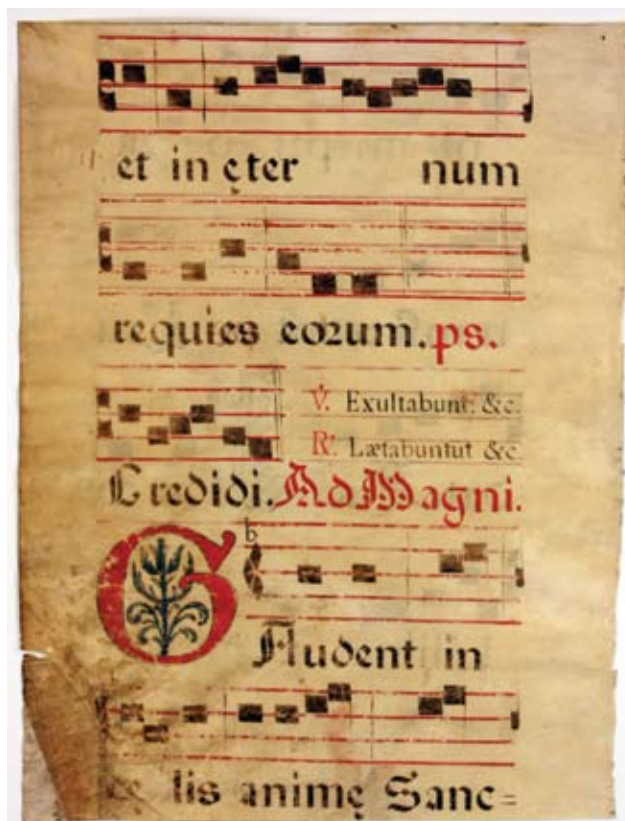 et in ęter num
requies eorum. ps.
℣. Exultabunt. &c.
℟. Lætabuntut &c.
Credidi. Ad Magni.
b
GAudent in
cę lis animę Sanc=